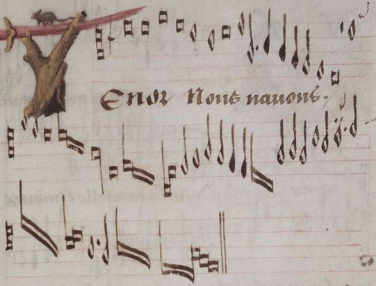 Enor Nous navons.